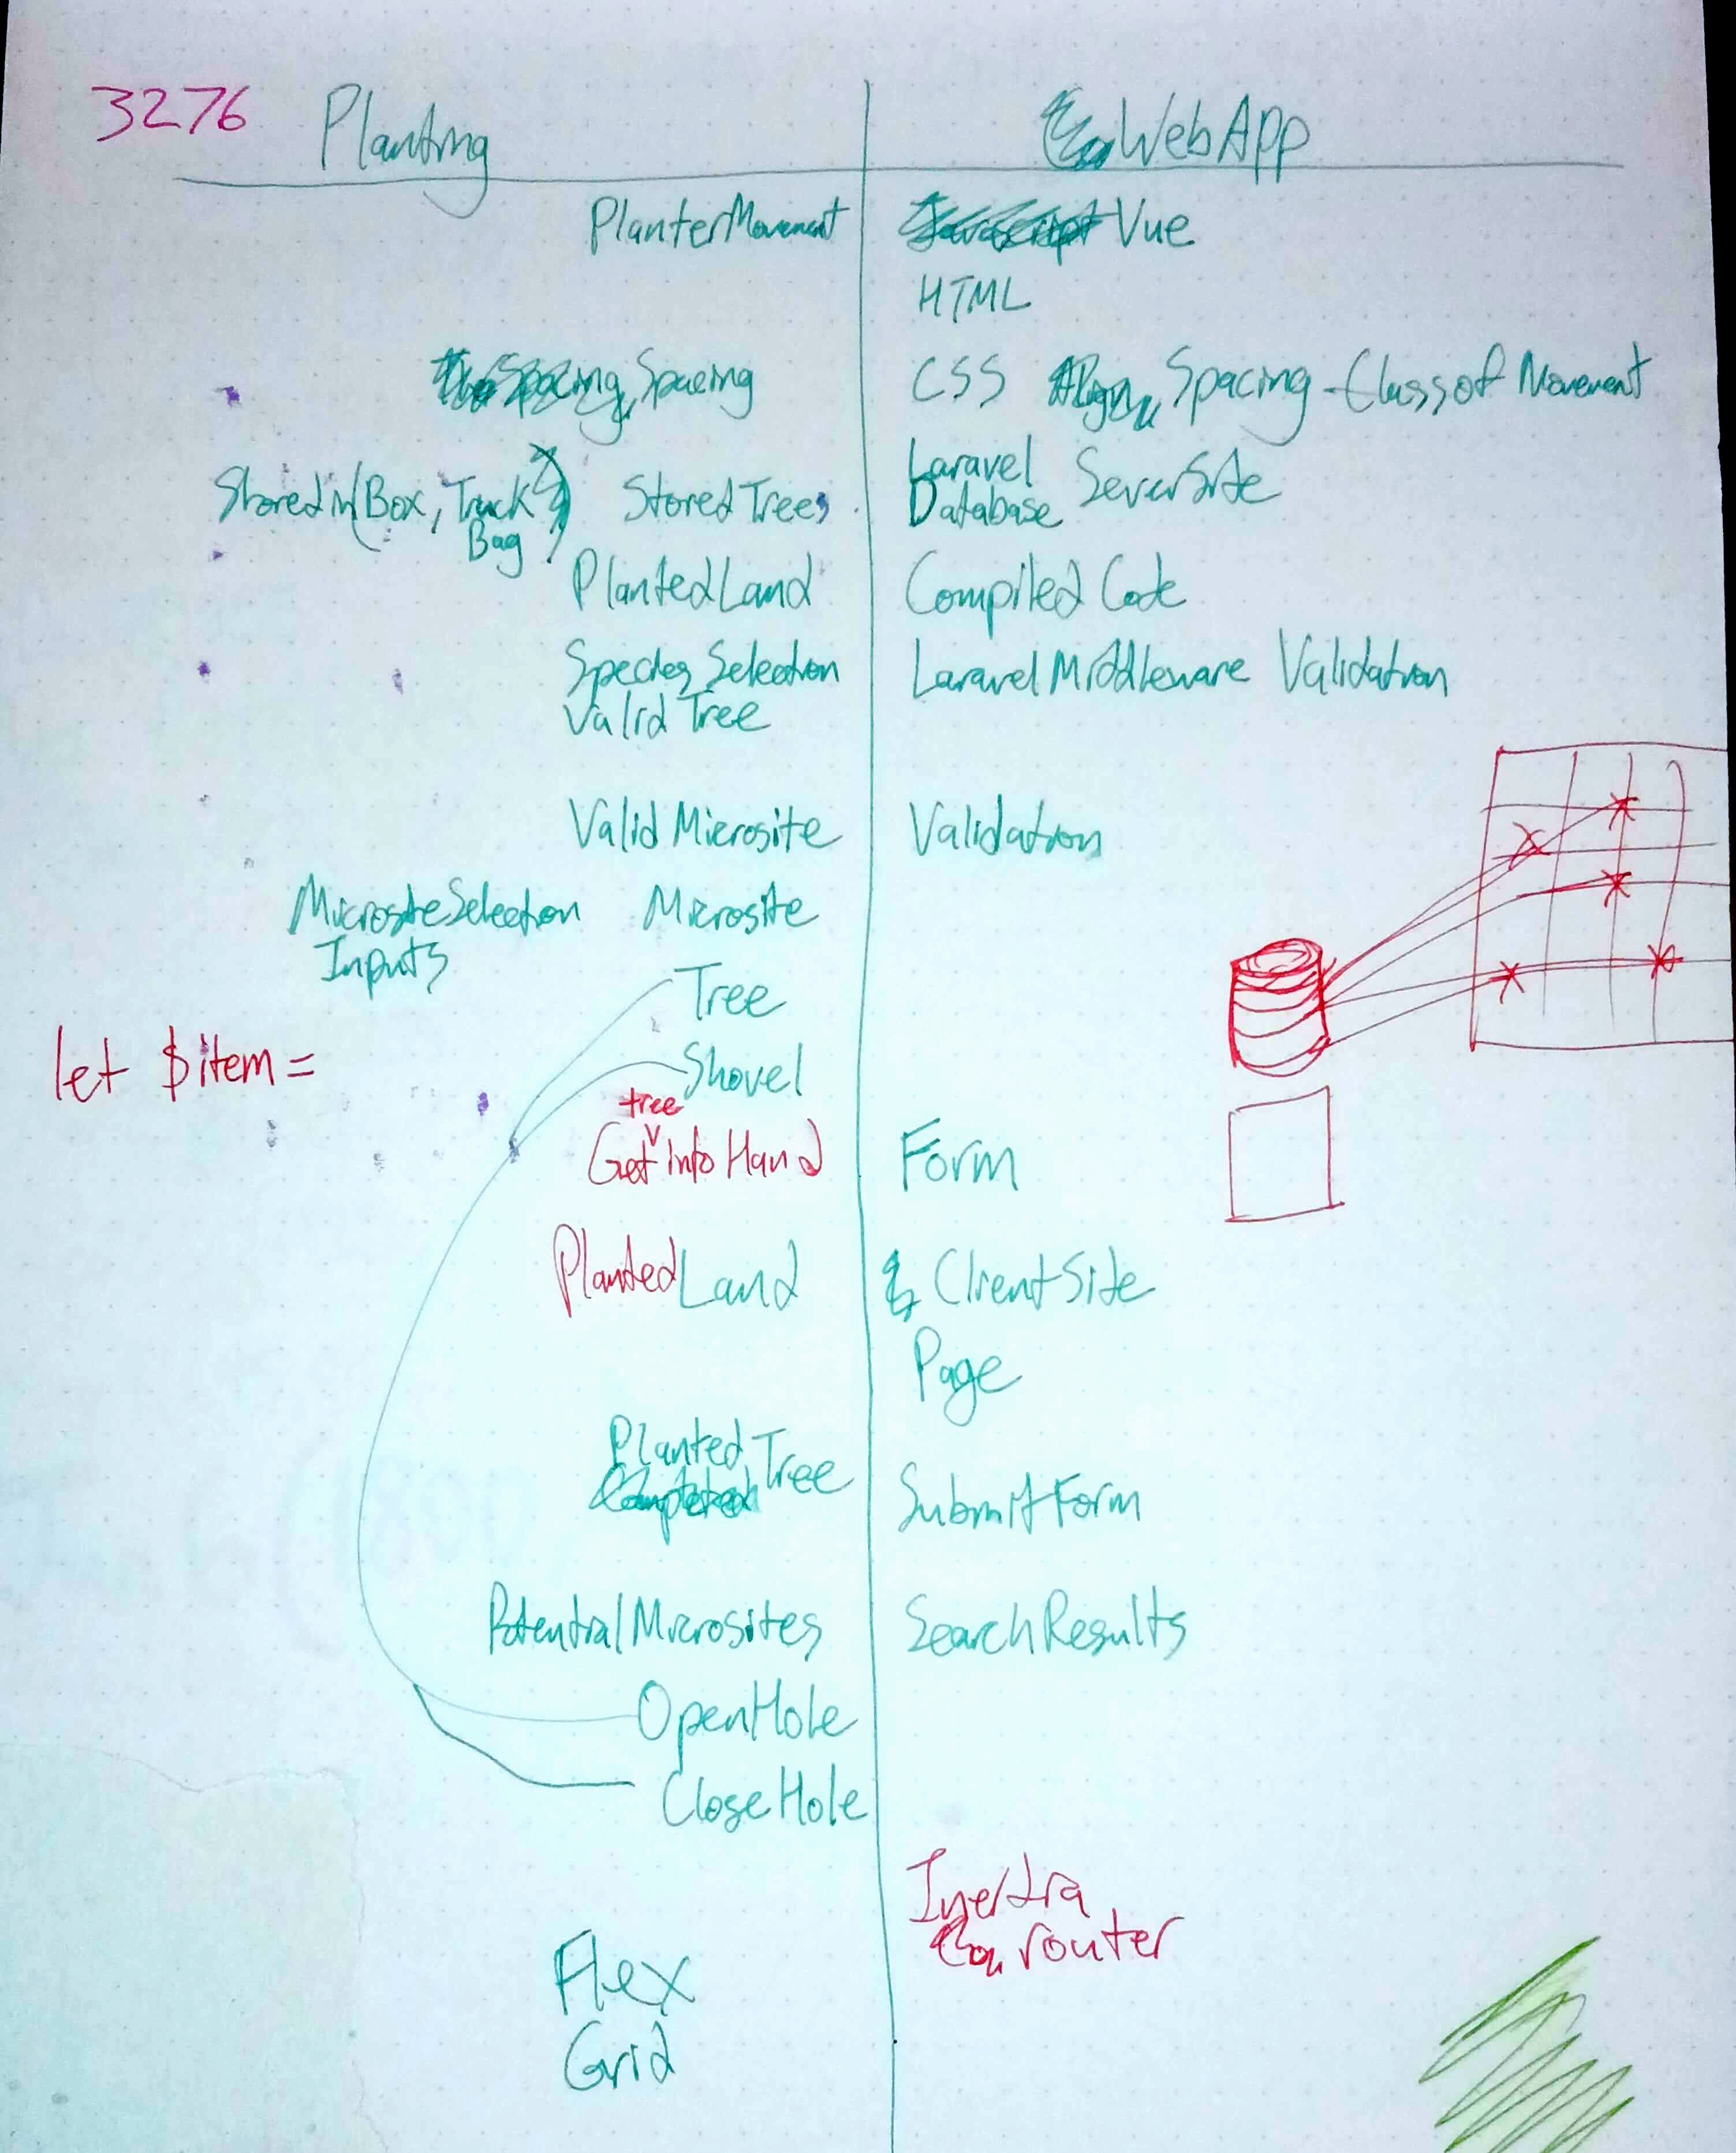 3276 Planting WebApp
PlanterMovement Javascript Vue
HTML
Spacing Spacing CSS Align Spacing - Class of Movement
Stored in (Box, Truck StoredTrees Laravel SeverSite
Bag) Database
PlantedLand Compiled Code
Species Selection LaravelMiddleware Validation
Valid Tree
Valid Microsite Validation
MicrositeSelection Microsite
Inputs
Tree
let $item = Shovel
tree
Get into Hand Form
PlantedLand ClientSite
Page
Planted Tree
Completed SubmitForm
PotentialMicrosites SearchResults
OpenHole
CloseHole
Inertia
router
Flex
Grid